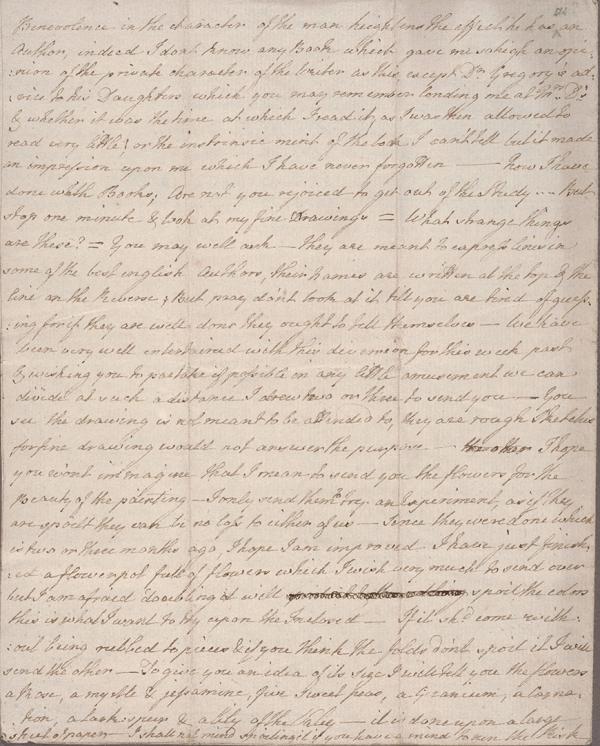 Benevolence in the character of the man heightens the effect he has as an
Author, indeed I dont know any Book which gave me so high an opi-
:nion of the private character of the Writer as this, except Dr. Gregory's ad-
:vice to his Daughters which you may remember lending me at Mrs. D's
& whether it was the time at which I read it, as I was then allowed to
read very little! or the instrinsic merit of the book I can't tell but it made
an impression upon me which I have never forgotten — Now I have
done with Books, Are not you rejoiced to get out of the Study ... But
stop one minute & look at my fine Drawings = What strange things
are these? = You may well ask — they are meant to express lines in
some of the best english Authors, their names are written at the top & the
line on the Reverse; But pray don't look at it till you are tired of guess-
:ing for if they are well done they ought to tell themselves — We have
been very well entertained with this diversion for this week past
& wishing you to partake if possible in any little amusement we can
divide at such a distance I drew two or three to send you — You
see the drawing is not meant to be attended to, they are rough Sketches
for fine drawing would not answer the purpose — I hope
you wont immagine that I mean to send you the flowers for the
Beauty of the painting — I only send them to try an Experiment, as if they
are spoilt they can be no loss to either of us — Since they were done which
is two or three months ago, I hope I am improved I have just finish-
:ed a flowerpot full of flowers which I wish very much to send over
but I am afraid doubling it will spoil the colors
this is what I want to try upon the Inclosed — If it shd. come with:
:out being rubbed to pieces & if you think the folds don't spoil it I will
send the other — To give you an idea of its size I will tell you the flowers
a Rose, a myrtle & jessamine, five sweet peas, a Geranium, a Carna-
tion, a Lark spur & a lily of the Valley — it is done upon a large
sheet of paper — I shall not mind spoiling it if you have a mind to run the Risk